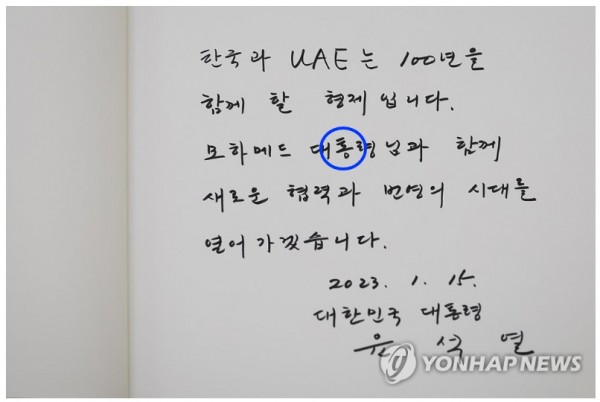 한국과 UAE는 100년을
함께 할 형제입니다.
모하메드 대통령님과 함께
새로운 협력과 번영의 시대를
열어 가겠습니다.
2023. 1. 15.
대한민국 대통령
윤 석 열
YONHAP NEWS